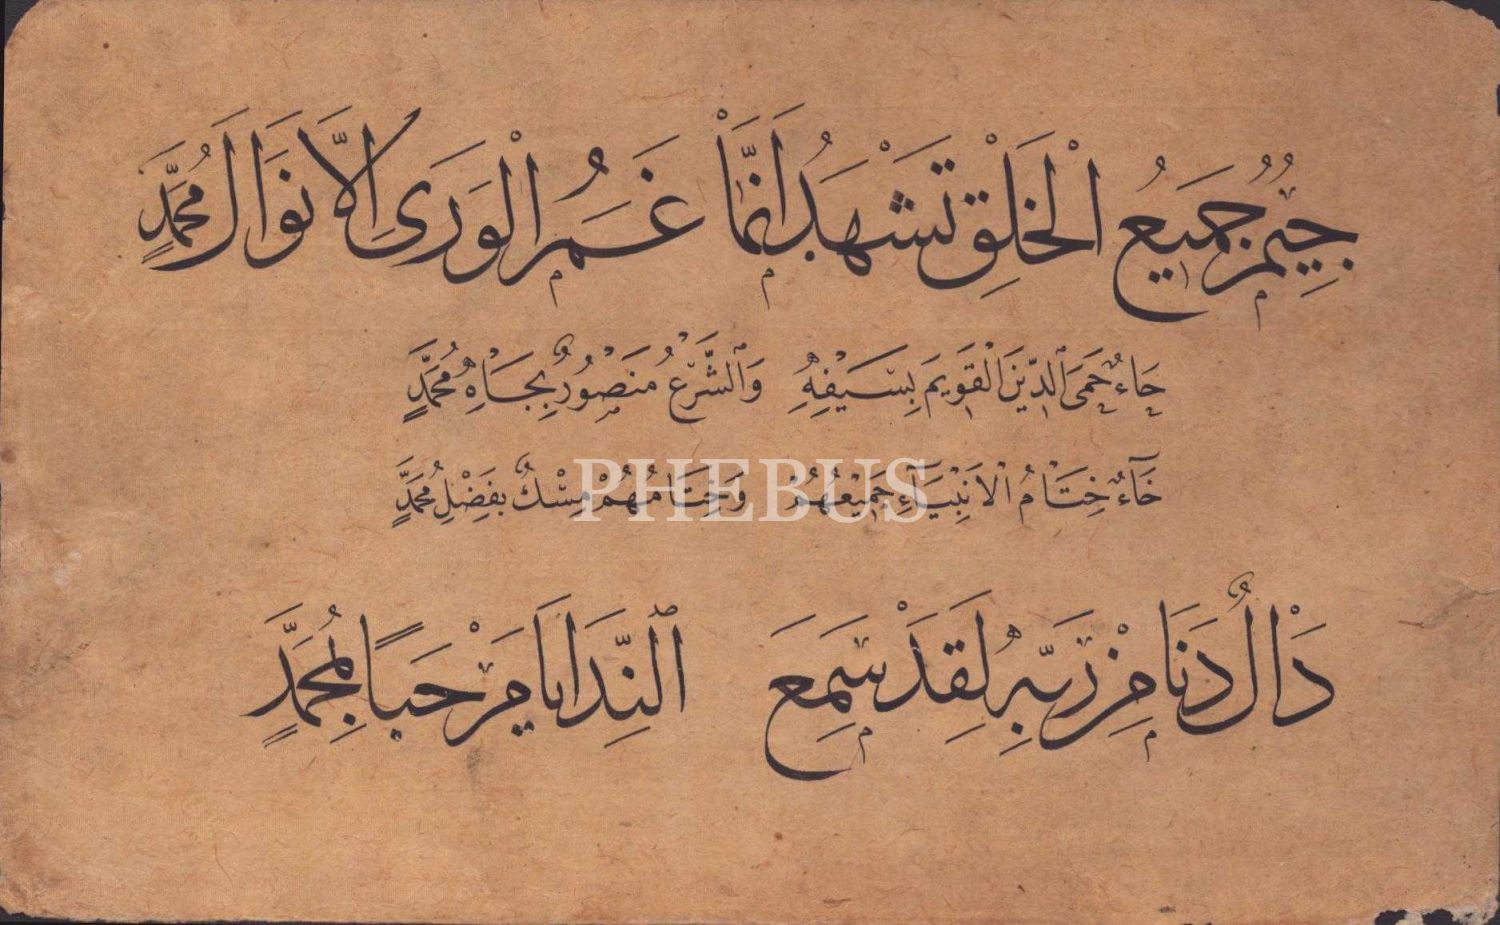 جِيمٌ جَمِيعُ الْخَلْقِ تَشْهَدُ اَنَّمَا غَمَرُ الْوَرَى اِلَّا نَوَالَ مُحَمَّدٍ
حَاءٌ حَمَى الدِّينَ الْقَوِيمَ بِسَيْفِهِ وَالشَّرْعُ مَنْصُورٌ بِجَاهِ مُحَمَّدٍ
خَاءٌ خِتَامُ الْاَنْبِيَاءِ جَمِيعُهُمْ وَخِتَامُهُمْ مِسْكٌ بِفَضْلِ مُحَمَّدٍ
PHEBUS
دَالٌ دَنَا مِنْ رَبِّهِ لَقَدْ سَمِعَ النِّدَا يَا مَرْحَبًا بِمُحَمَّدٍ